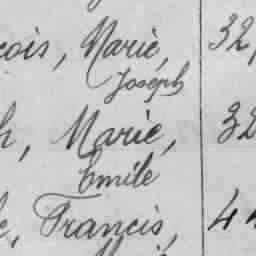 çois, Marie, 32,
Joseph
h, Marie, 32
Emile
, Francis, 4